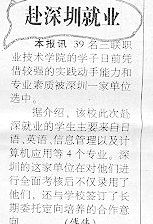 赴深圳就业
本报讯 39名三联职
业技术学院的学子日前凭
借较强的实践动手能力和
专业素质被深圳一家单位
选中。
据介绍，该校此次赴
深就业的学生主要来自日
语、英语、信息管理以及计
算机应用等4个专业。深
圳的这家单位在对他们进
行全面考核后不仅录用了
他们，还与学校签订了长
期委托定向培养的合作意